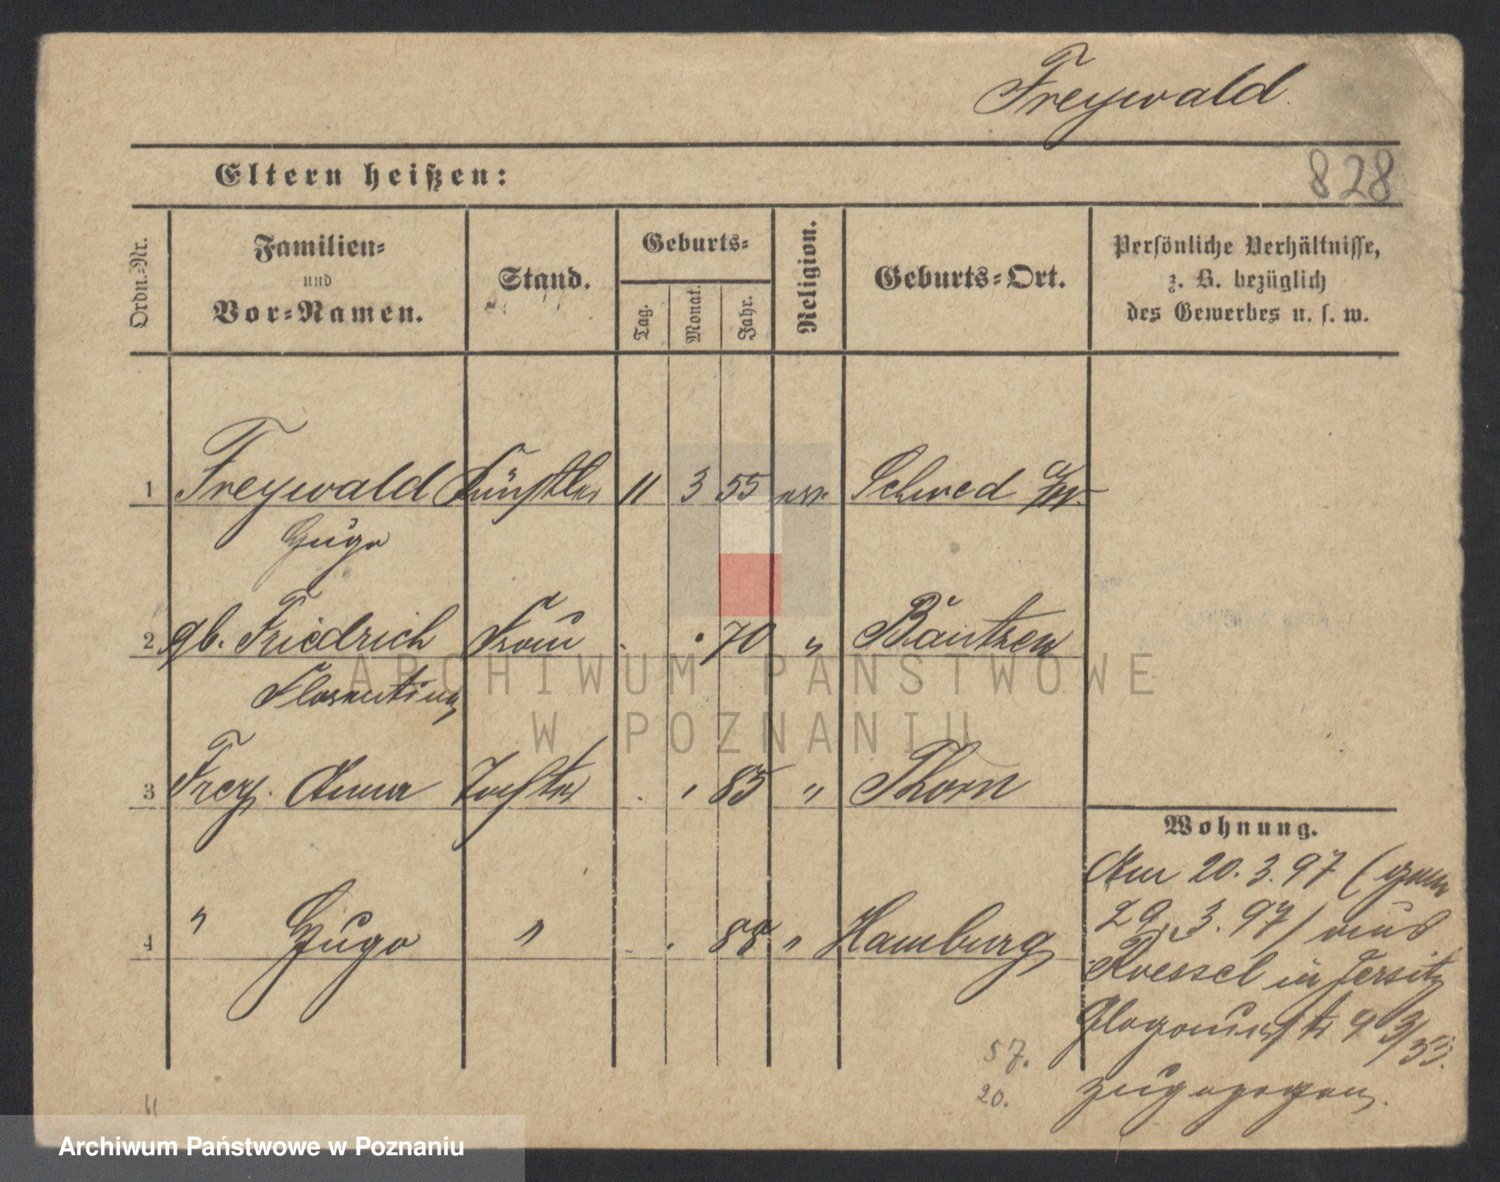 Freywald.
828
Eltern heißen:
Ordn.-Nr.
Familien-
und
Vor-Namen.
Stand.
Geburts-
Tag.
Monat.
Jahr.
Religion.
Geburts-Ort.
Persönliche Verhältnisse,
z. B. bezüglich
des Gewerbes u. s. w.
1 Freywald Künstler 11 3 55 ev. Schwed a/
Hugo
2 gb. Friedrich Frau 70 " Bautzen
Florentine
3 Frey. Anna Tochter 85 " Thorn
4 " Hugo " 88 " Hamburg
Wohnung.
Am 20.3.97 (gem
29.3.97) aus
Roessel in Jersitz
Glogauerstr 93/
zugezogen.
57.
20.
ARCHIWUM PAŃSTWOWE
W POZNANIU
Archiwum Państwowe w Poznaniu